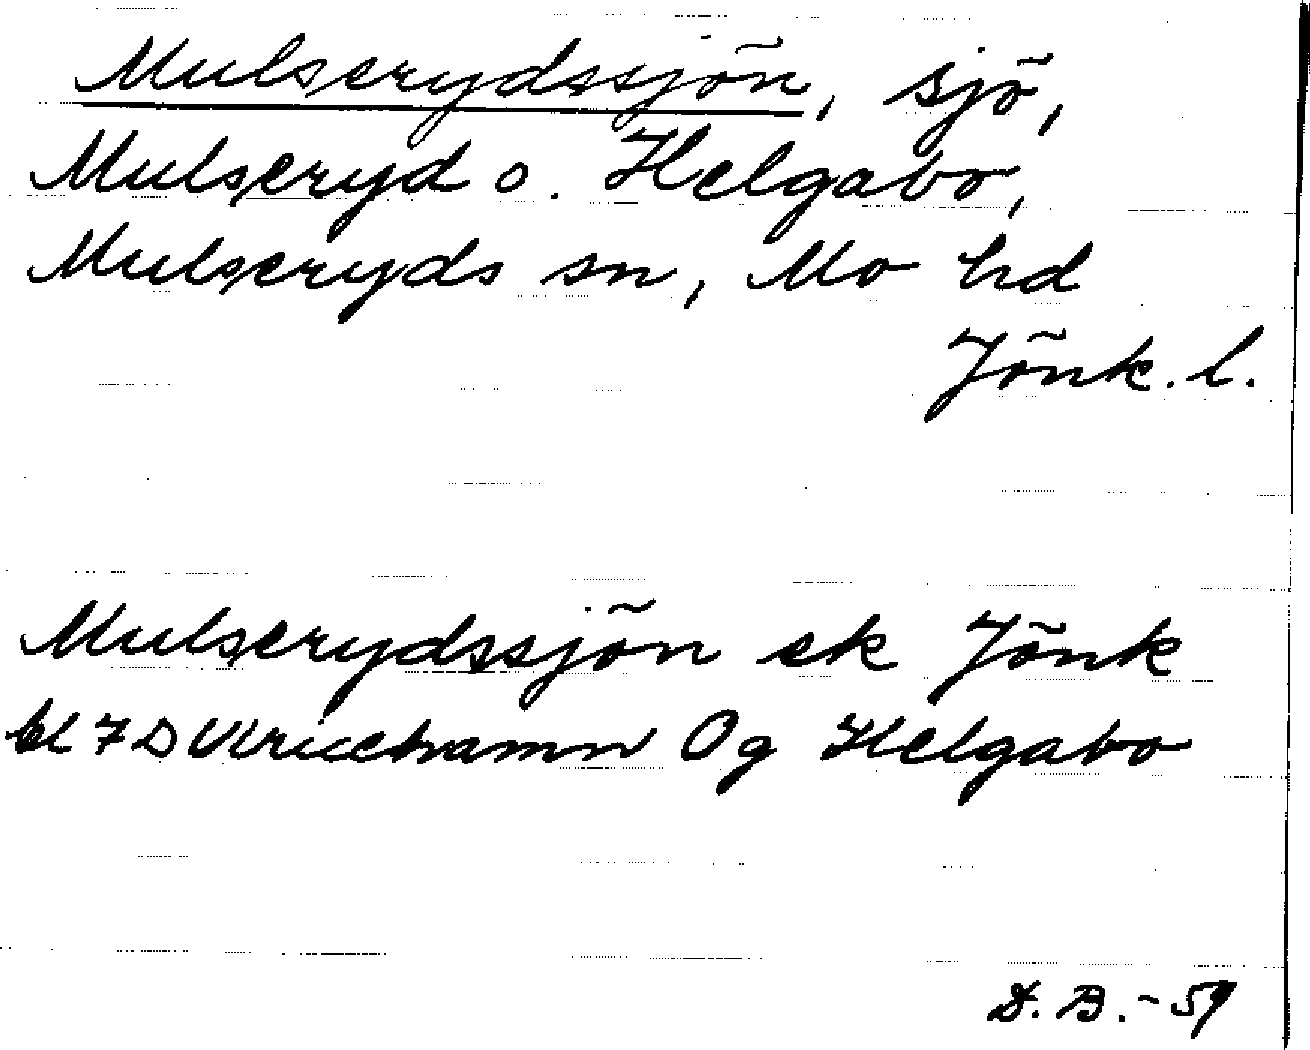 Mulserydssjön, sjö,
Mulseryd o. Helgabo,
Mulseryds sn, Mo hd
Jönk. l.
Mulserydssjön ek Jönk
bl 7 D Ulricehamn Og Helgabo
D. B. -59